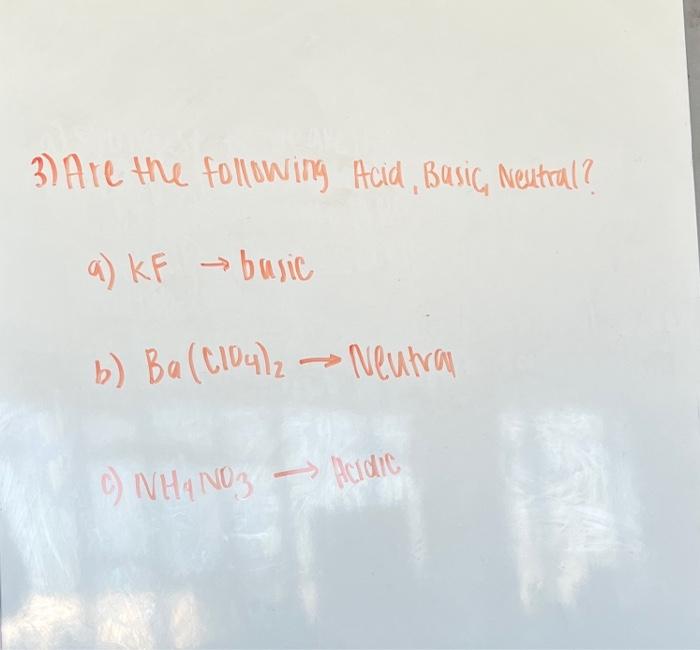 3) Are the following Acid, Basic, Neutral?
a) KF → basic
b) Ba(ClO4)2 → Neutral
c) NH4NO3 → Acidic